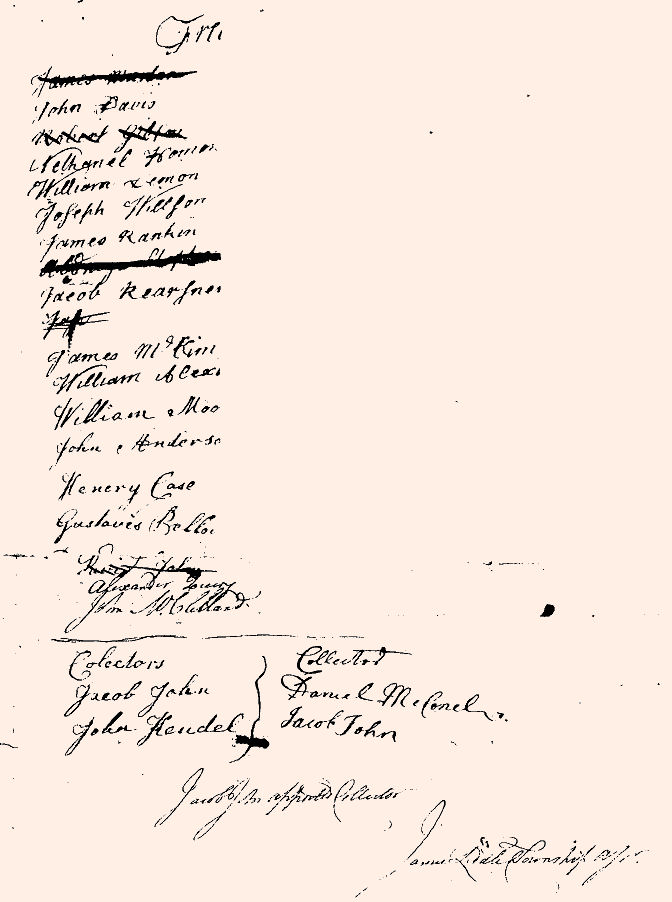 Fre
James
John Davis
Robert
Nethanel
William Lemon
Joseph Willson
James Rankin
Jacob Kearsner
James McKim
William Alexa
William Moo
John Anderso
Henery Case
Gustaves Bello
John
Alexander Lowry
John McClelland
Colectors
Jacob John
John Kendel
Collectd
Daniel McConel
Jacob John
Jacob Jhn appointed Collector
James Township